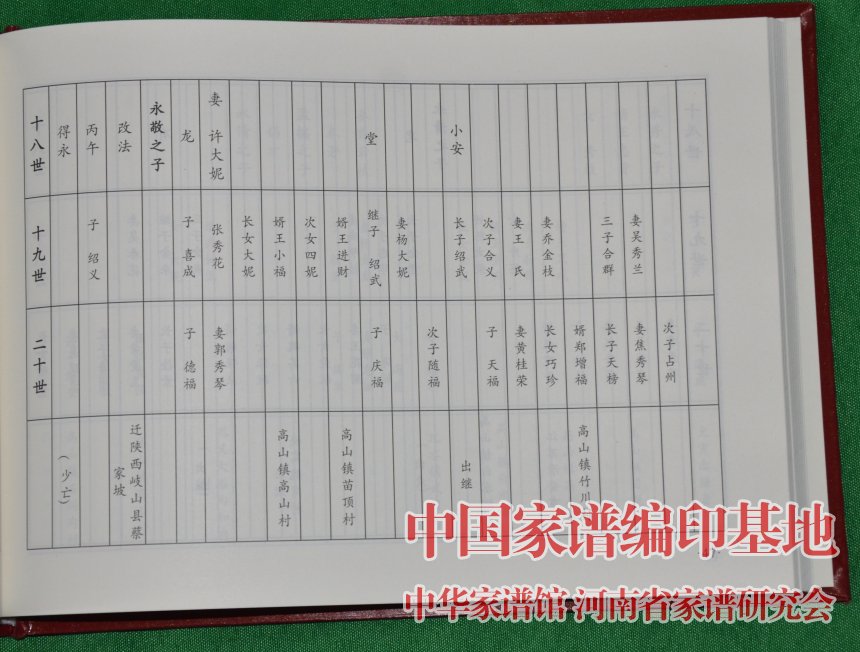 十八世
得永
丙午
改法
永敬之子
龙
妻 许大妮
堂
小安
十九世
子 绍义
子 喜成
张秀花
长女大妮
婿王小福
次女四妮
婿王进财
继子 绍武
妻杨大妮
长子绍武
次子合义
妻王 氏
妻乔金枝
三子合群
妻吴秀兰
二十世
子 德福
妻郭秀琴
子 庆福
次子随福
子 天福
妻黄桂荣
长女巧珍
婿郑增福
长子天榜
妻焦秀琴
次子占州
（少亡）
迁陕西岐山县蔡
家坡
高山镇高山村
高山镇苗顶村
出继
高山镇竹川
中国家谱编印基地
中华家谱馆 河南省家谱研究会